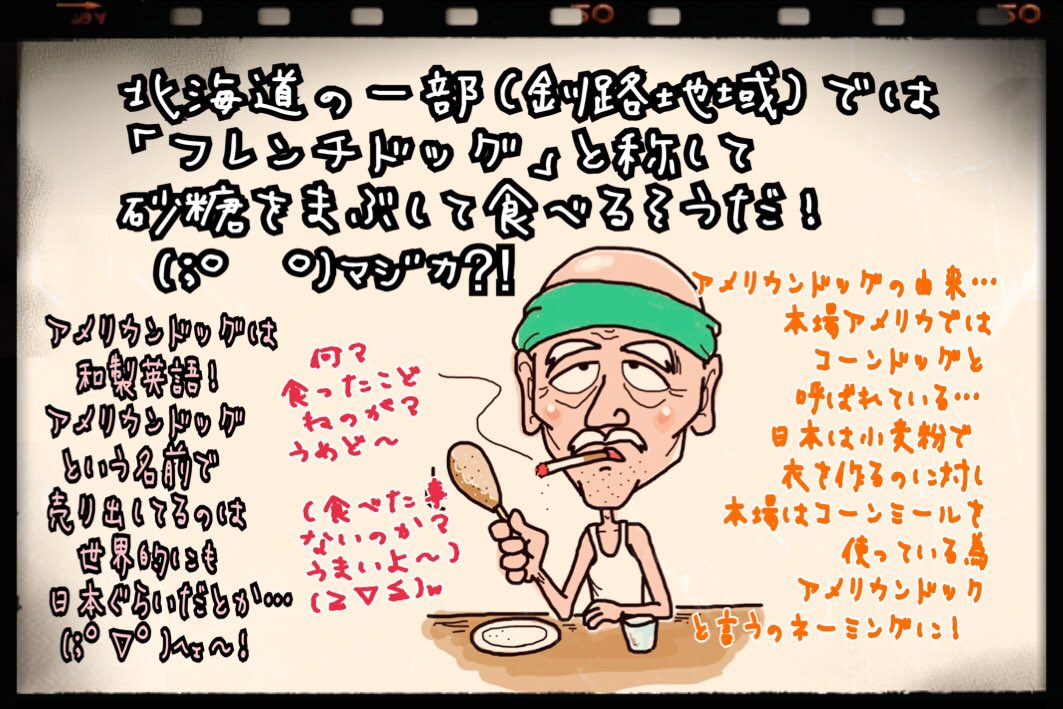 北海道の一部(釧路地域)では
「フレンチドッグ」と称して
砂糖をまぶして食べるそうだ!
(;° °)マジカ?!
アメリカンドッグは
和製英語!
アメリカンドッグ
という名前で
売り出してるのは
世界的にも
日本ぐらいだとか…
(;°▽°)へぇ〜!
何?
食ったこど
ねのが?
うめど〜
(食べた事
ないのか?
うまいよ〜)
(≧▽≦)w
アメリカンドッグの由来…
本場アメリカでは
コーンドッグと
呼ばれている…
日本は小麦粉で
衣を作るのに対し
本場はコーンミールを
使っている為
アメリカンドック
と言うのネーミングに!
50
50